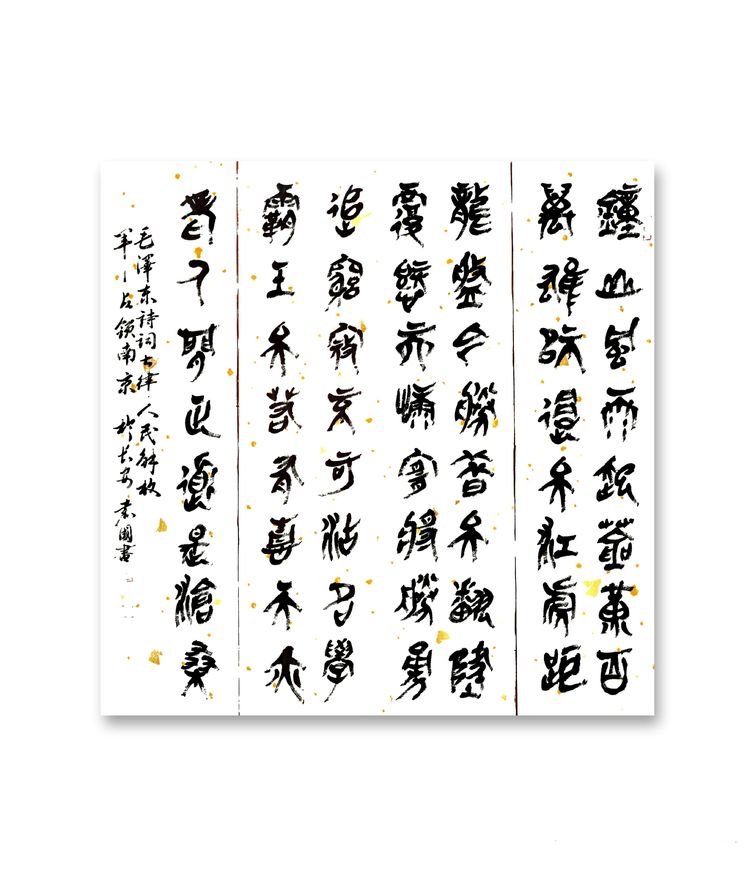 鐘山風雨起蒼黃百
萬雄師過大江虎踞
龍盤今勝昔天翻地
覆慨而慷宜將剩勇
追窮寇不可沽名學
霸王天若有情天亦
老人間正道是滄桑
毛澤东詩詞七律人民解放
军占領南京 於長安 國書